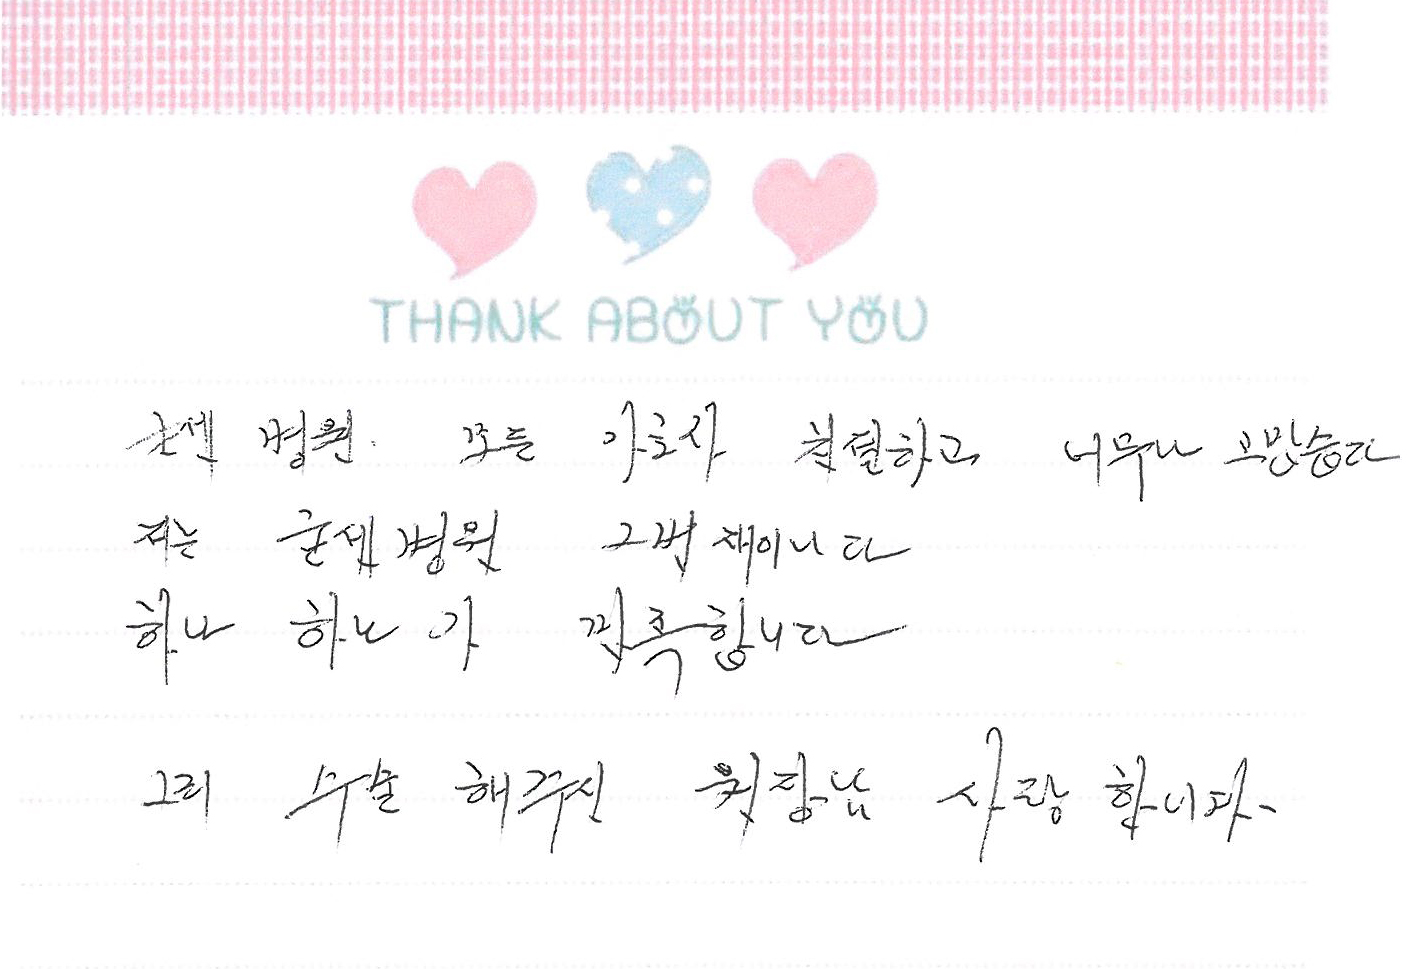 THANK ABOUT YOU
굳센 병원. 모든 간호사 친절하고 너무나 고맙습다
저는 굳센병원 그번째이니다
하나 하나가 만족합니다
그리 수술 해주신 원장님 사랑 합니다